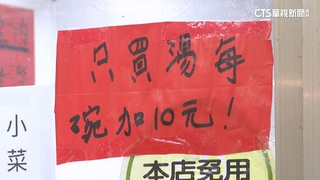 CTS華視新聞
只買湯每
碗加10元！
小菜
本店免用